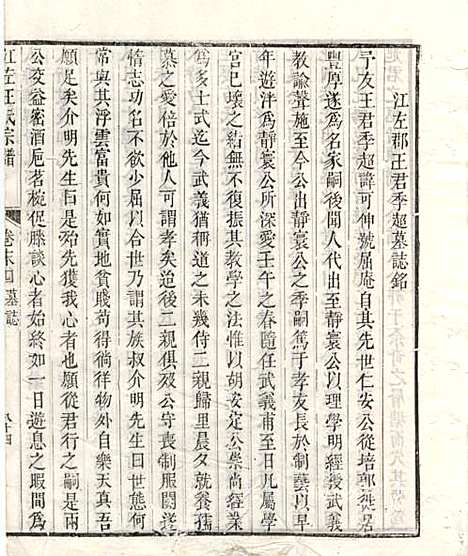 江左郡王君季超墓誌銘
予友王君季超諱可伸號屆庵自其先世仁安公從培郭從居
豐厚遂爲名家嗣後聞人代出至靜寰公以理學明經授武義
教諭聲施至今公出靜寰公之季嗣篤于孝友長於解氣以早
年遊泮爲靜寰公所深愛壬午之春隨任武義甫九月屬學
宮已壞之結無不復興其教學之法惟以胡安定公崇尚經業
爲亥士式今武義猶稱道之未幾侍二親歸里晨夕就養孺
慕之愛倍於他人可謂孝矣迨後二親俱殁公守喪制服闋遂
情志功名不欲少屈以合世乃謂其族叔介明先生曰世態何
常與其浮雲富貴何如實地貧賤苟得徜徉物外自樂天真吾
願足矣介明先生曰是殆先獲我心者也願從君行之嗣是兩
公交益密酒卮茗椀促膝談心者始終如一日遊息之暇間爲
江左王氏宗譜
卷末四墓誌